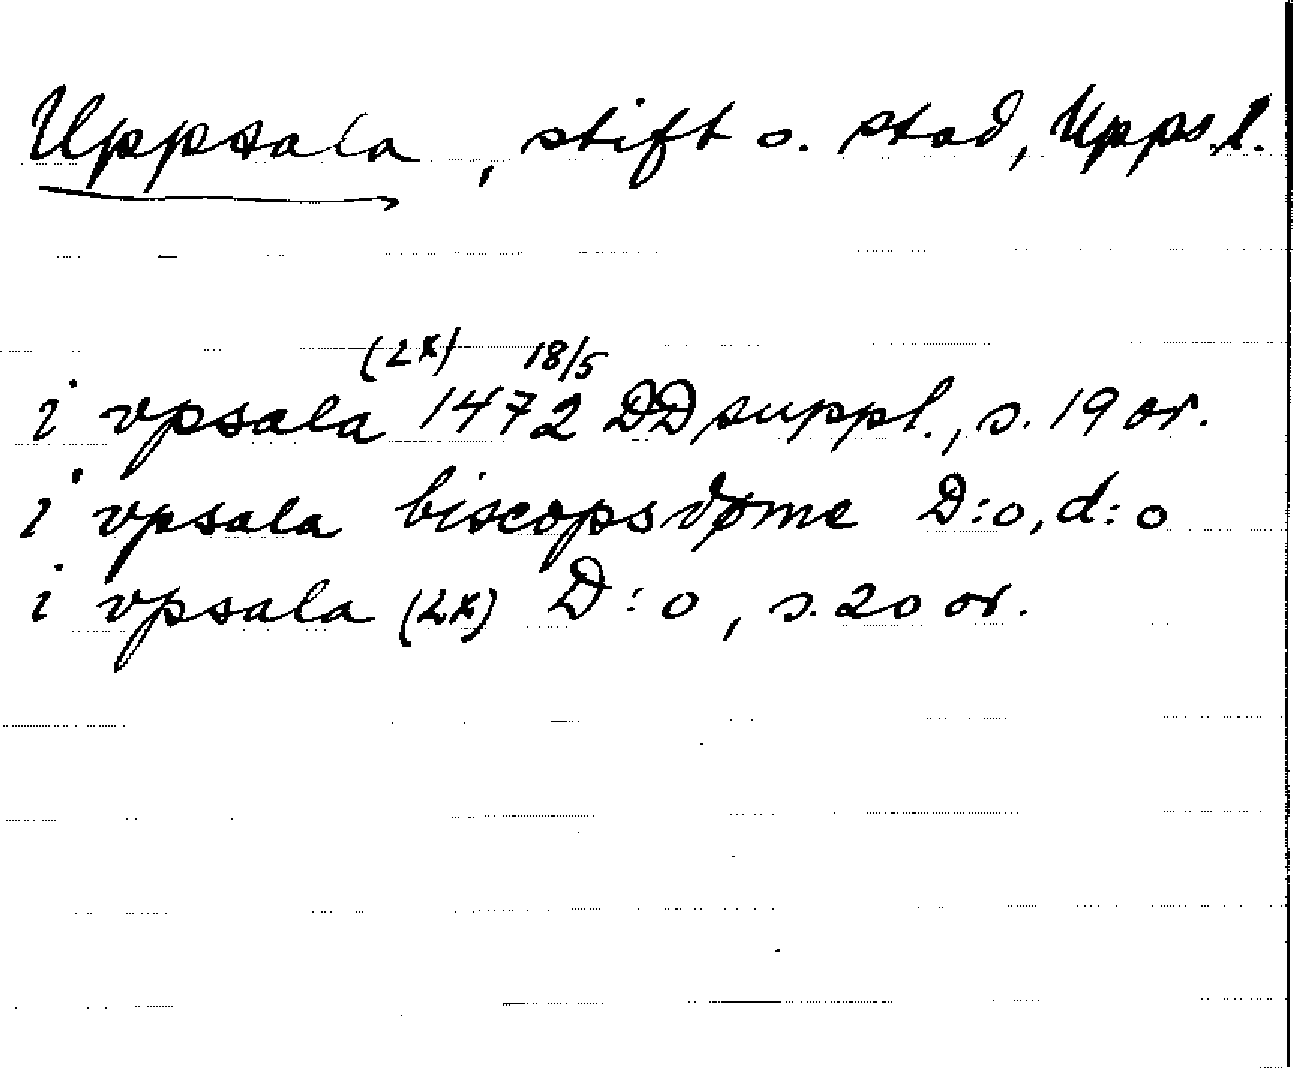 Uppsala, stift o. stad, Upps.l.
(2x) 18/5
i vpsala 1472 DD suppl., s. 19 or.
i vpsala biscopsdøme D:o, d:o
i vpsala (2x) D:o, s. 20 or.